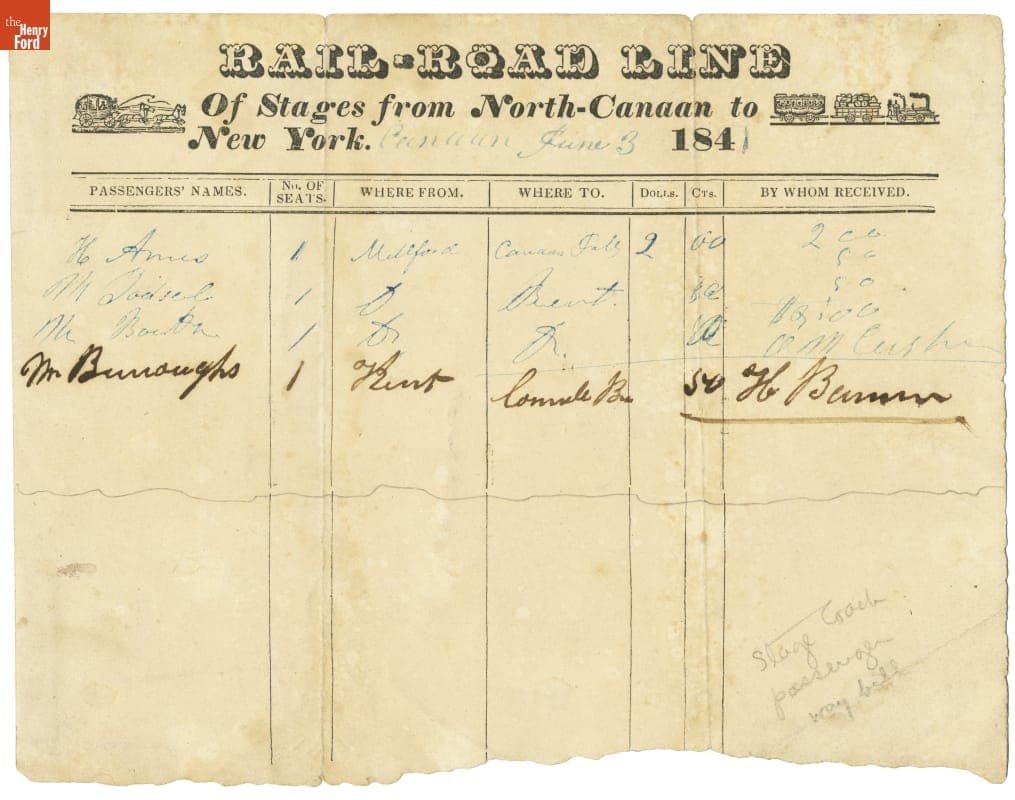 the
Henry
Ford
RAIL-ROAD LINE
Of Stages from North-Canaan to
New York. Canaan June 3 1841
PASSENGERS' NAMES. No. OF SEATS. WHERE FROM. WHERE TO. DOLLS. CTS. BY WHOM RECEIVED.
H Ames 1 Millford Canaan Falls 2 00 2 00
50
M 1 D Kent. 50 50
Mr 1 Do Do. $3.00
Mr Burroughs 1 Kent 50 H
Stage Coach
passenger
way bill